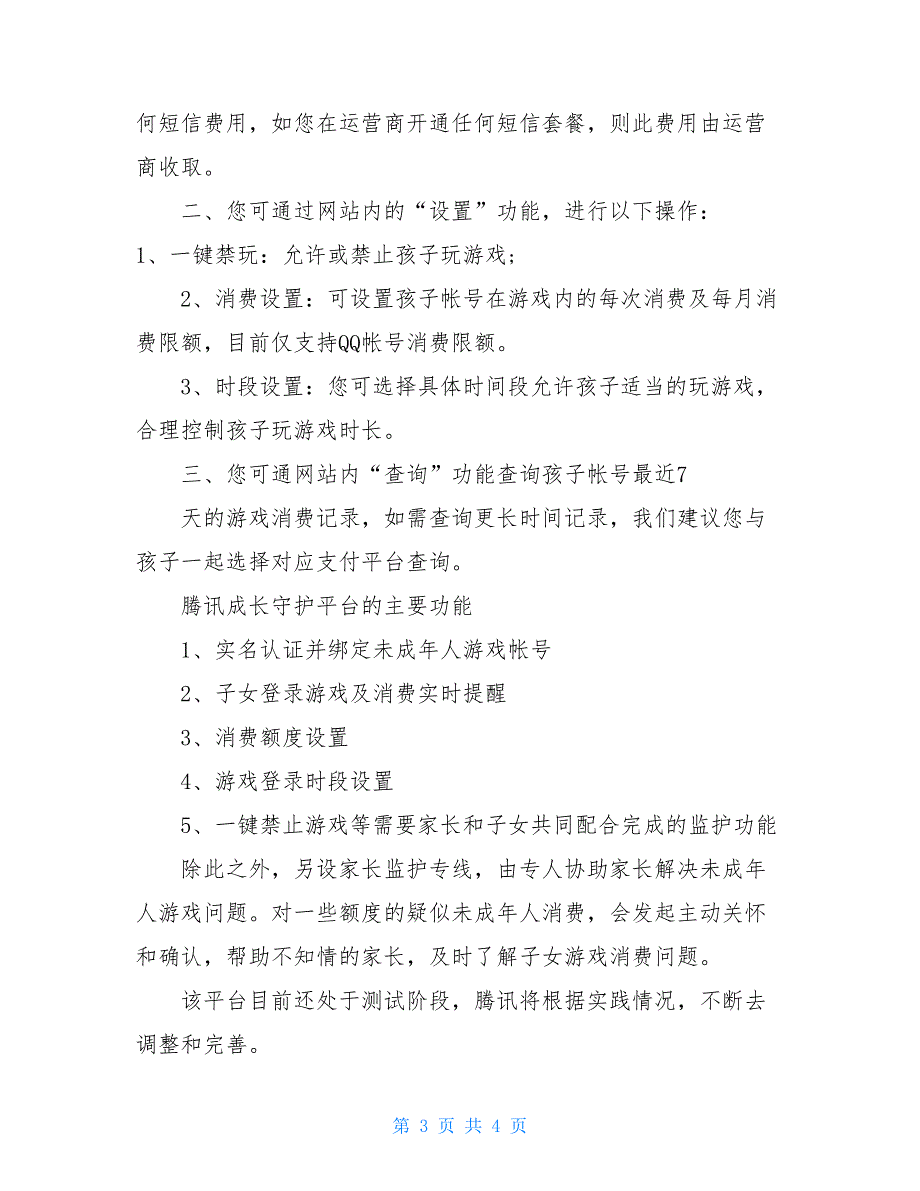 何短信费用，如您在运营商开通任何短信套餐，则此费用由运营
商收取。
二、您可通过网站内的“设置”功能，进行以下操作：
1、一键禁玩：允许或禁止孩子玩游戏;
2、消费设置：可设置孩子帐号在游戏内的每次消费及每月消
费限额，目前仅支持QQ帐号消费限额。
3、时段设置：您可选择具体时间段允许孩子适当的玩游戏，
合理控制孩子玩游戏时长。
三、您可通网站内“查询”功能查询孩子帐号最近7
天的游戏消费记录，如需查询更长时间记录，我们建议您与
孩子一起选择对应支付平台查询。
腾讯成长守护平台的主要功能
1、实名认证并绑定未成年人游戏帐号
2、子女登录游戏及消费实时提醒
3、消费额度设置
4、游戏登录时段设置
5、一键禁止游戏等需要家长和子女共同配合完成的监护功能
除此之外，另设家长监护专线，由专人协助家长解决未成年
人游戏问题。对一些额度的疑似未成年人消费，会发起主动关怀
和确认，帮助不知情的家长，及时了解子女游戏消费问题。
该平台目前还处于测试阶段，腾讯将根据实践情况，不断去
调整和完善。
第 3 页 共 4 页